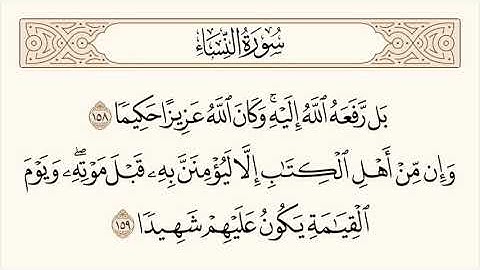 سُورَةُ النِّسَاءِ
بَل رَّفَعَهُ ٱللَّهُ إِلَيْهِ ۚ وَكَانَ ٱللَّهُ عَزِيزًا حَكِيمًا ١٥٨
وَإِن مِّنْ أَهْلِ ٱلْكِتَٰبِ إِلَّا لَيُؤْمِنَنَّ بِهِۦ قَبْلَ مَوْتِهِۦ ۖ وَيَوْمَ
ٱلْقِيَٰمَةِ يَكُونُ عَلَيْهِمْ شَهِيدًا ١٥٩